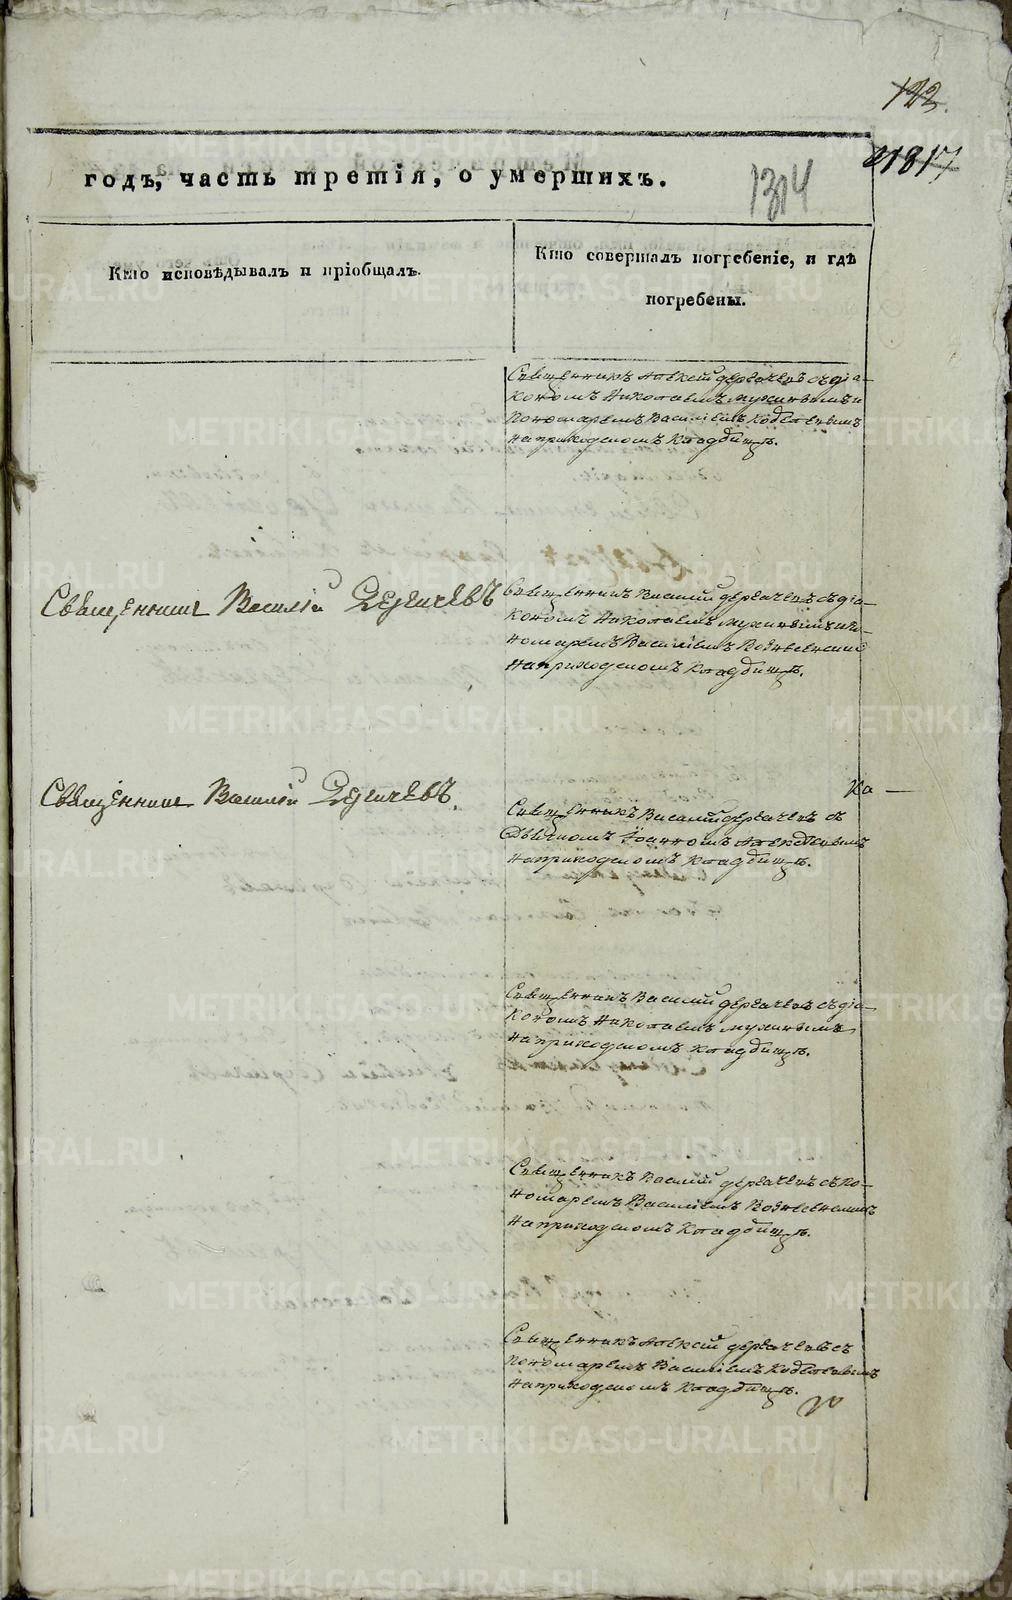 122.
годъ, часть третія, о умершихъ.
1314
21817
Кто исповѣдывалъ и пріобщалъ.
Кто совершалъ погребеніе, и гдѣ
погребены.
Священникъ Алексій Дергачевъ съ діа-
кономъ Николаемъ Мухинымъ и
Пономаремъ Василіемъ
на приходскомъ кладбищѣ.
Священникъ Василій Дергачевъ
Священникъ Василій Дергачевъ съ діа-
кономъ Николаемъ Мухинымъ и по-
номаремъ Василіемъ
на приходскомъ кладбищѣ.
Священникъ Василій Дергачевъ.
На —
Священникъ Василій Дергачевъ съ
Дьячкомъ Іоанномъ
на приходскомъ кладбищѣ.
Священникъ Василій Дергачевъ съ діа-
кономъ Николаемъ Мухинымъ
на приходскомъ кладбищѣ.
Священникъ Василій Дергачевъ съ по-
номаремъ Василіемъ
на приходскомъ кладбищѣ.
Священникъ Алексій Дергачевъ съ
пономаремъ Василіемъ
на приходскомъ кладбищѣ.
METRIKI.GASO-URAL.RU